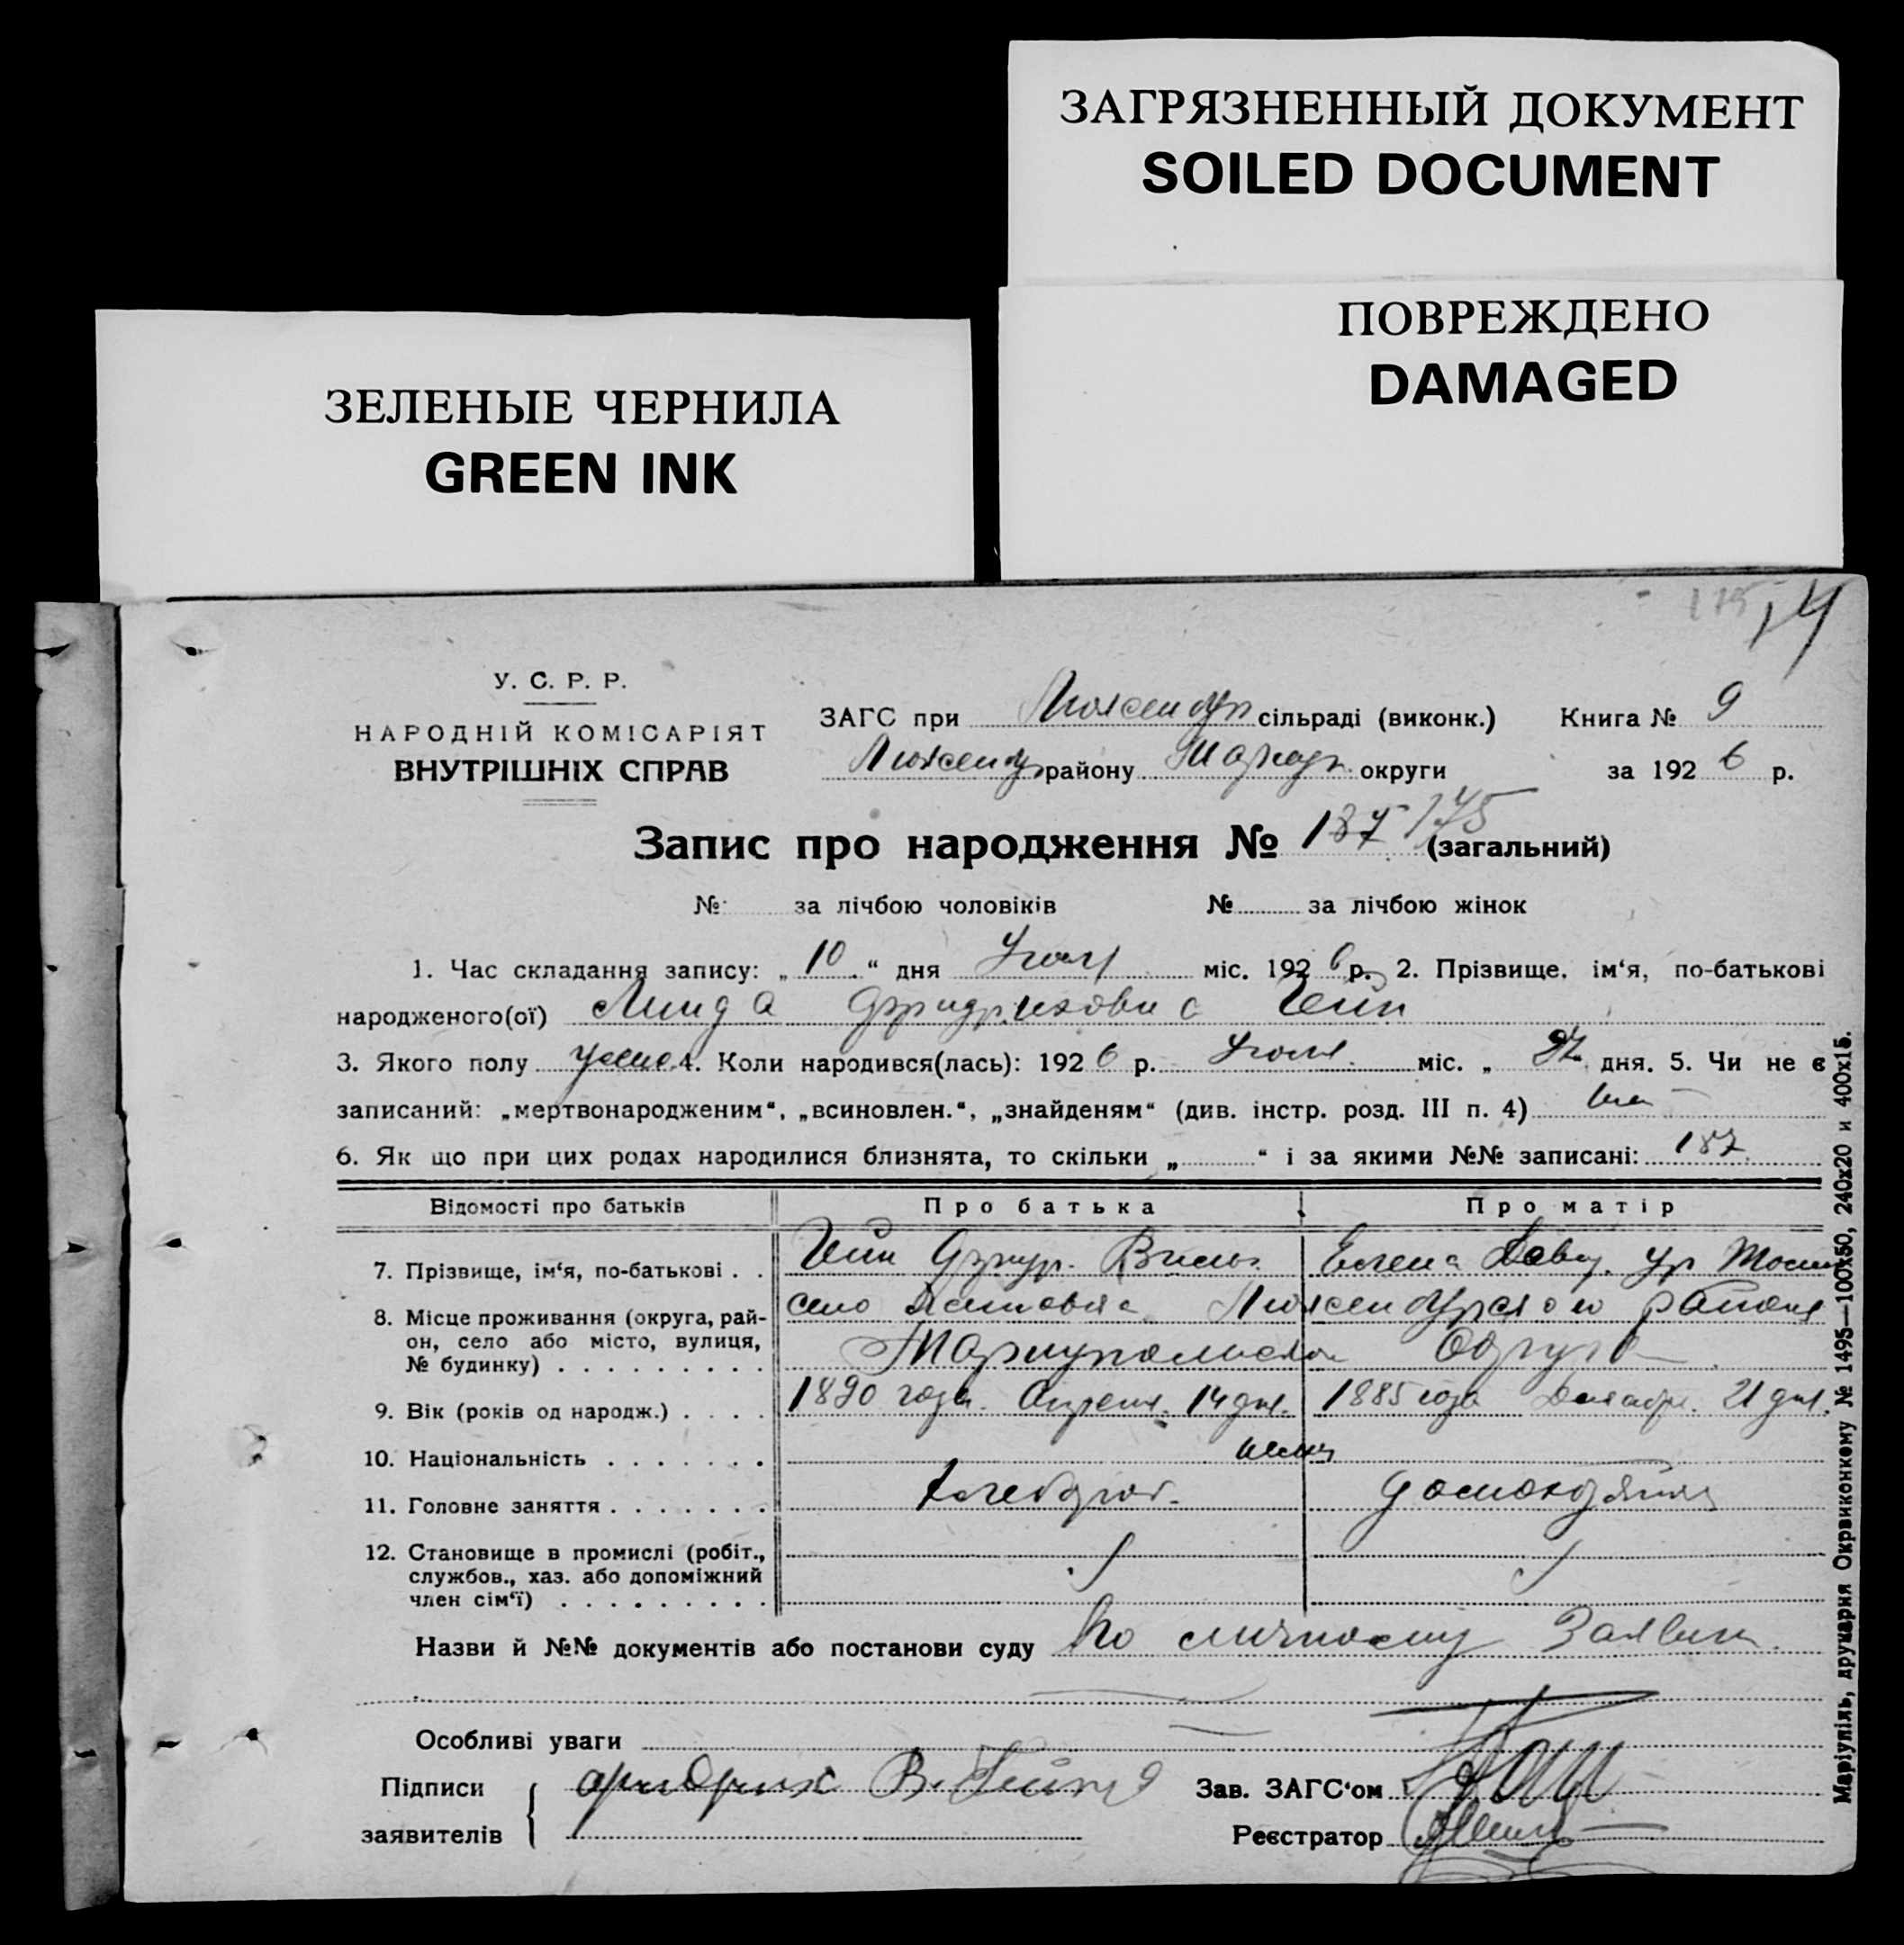 ЗАГРЯЗНЕННЫЙ ДОКУМЕНТ
SOILED DOCUMENT
ПОВРЕЖДЕНО
DAMAGED
ЗЕЛЕНЫЕ ЧЕРНИЛА
GREEN INK
175 14
У. С. Р. Р.
НАРОДНІЙ КОМІСАРІЯТ
ВНУТРІШНІХ СПРАВ
ЗАГС при Люксембур сільраді (виконк.) Книга № 9
району округи за 1926 р.
Запис про народження № 187 175 (загальний)
№ за лічбою чоловіків № за лічбою жінок
1. Час складання запису: „10“ дня міс. 1926 р. 2. Прізвище, ім‘я, по-батькові
народженого(ої) Линда Фридриховна Гейн
3. Якого полу 4. Коли народився(лась): 1926 р. міс. „ дня. 5. Чи не є
записаний: „мертвонародженим“, „всиновлен.“, „знайденям“ (див. інстр. розд. III п. 4)
6. Як що при цих родах народилися близнята, то скільки „ “ і за якими №№ записані: 187
Відомості про батьків Про батька Про матір
7. Прізвище, ім‘я, по-батькові . . Гейн Фридр. Вильг. Елена
8. Місце проживання (округа, рай-
он, село або місто, вулиця,
№ будинку) . . . . . . . . .
село Люксембургского района
Мариупольская Округа
9. Вік (років од народж.) . . . . 1890 года. Апреля. 14 дня. 1885 года Декабр. 21 дня.
10. Національність . . . . . . . немц
11. Головне заняття . . . . . . . хлебороб. домохозяйка
12. Становище в промислі (робіт.,
службов., хаз. або допоміжний
член сім‘ї) . . . . . . . . .
Назви й №№ документів або постанови суду По личному Заявлен.
Особливі уваги
Підписи Фридрих В. Гейн
заявителів
Зав. ЗАГС‘ом
Реєстратор
Маріупіль, друкарня Окрвиконкому № 1495—100х50, 240х20 и 400х15.